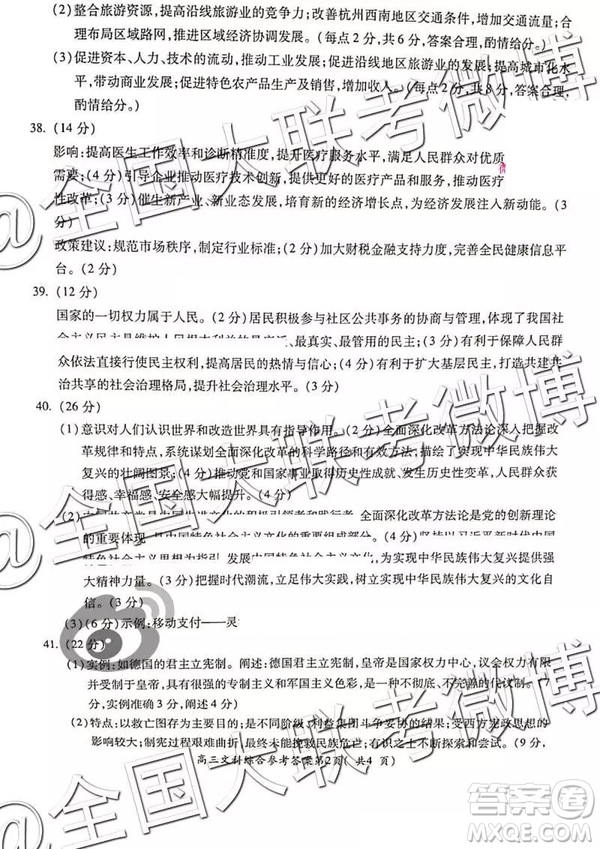 (2) 整合旅游资源,提高沿线旅游业的竞争力;改善杭州西南地区交通条件,增加交通流量;合
理布局区域路网,推进区域经济协调发展。(每点2分,共6分,答案合理,酌情给分。)
(3) 促进资本、人力、技术的流动,推动工业发展;促进沿线地区旅游业的发展;提高城市化水
平,带动商业发展;促进特色农产品生产及销售,增加收入。(每点2分,共8分,答案合理,
酌情给分。)
38. (14分)
影响:提高医生工作效率和诊断精准度,提升医疗服务水平,满足人民群众对优质
需要;(4分)引导企业推动医疗技术创新,提供更好的医疗产品和服务,推动医疗
性改革;(3分)催生新产业、新业态发展,培育新的经济增长点,为经济发展注入新动能。(3
分)
政策建议:规范市场秩序,制定行业标准;(2分)加大财税金融支持力度,完善全民健康信息平
台。(2分)
39. (12分)
国家的一切权力属于人民。(2分)居民积极参与社区公共事务的协商与管理,体现了我国
社会主义民主是维护人民根本利益的最广泛、最真实、最管用的民主;(4分)有利于保障人民群
众依法直接行使民主权利,提高居民的热情与信心;(3分)有利于扩大基层民主,打造共建共
治共享的社会治理格局,提升社会治理水平。(3分)
40. (26分)
(1) 意识对人们认识世界和改造世界具有指导作用。(2分)全面深化改革方法论深入把握改
革规律和特点,系统谋划全面深化改革的科学路径和有效方法,描绘了实现中华民族伟大
复兴的壮阔图景;(4分)推动党和国家事业取得历史性成就、发生历史性变革,人民群众获
得感、幸福感、安全感大幅提升。(4分)
(2) 全面深化改革方法论是党的创新理论
的重要体现,是中国特色社会主义文化的重要组成部分。(4分)坚持以习近平新时代中国
特色社会主义思想为指引,发展中国特色社会主义文化,(3分)为实现中华民族伟大复兴提供强
大精神力量。(3分)把握时代潮流,立足伟大实践,坚定实现中华民族伟大复兴的文化自
信。(3分)
(3) (6分)示例:移动支付——灵
41. (22分)
(1) 实例:如德国的君主立宪制。阐述:德国君主立宪制,皇帝是国家权力中心,议会权力有限
并受制于皇帝,具有强烈的专制主义和军国主义色彩,是一种很不彻底、不完善的代议制。(7
分,实例准确4分,阐述4分)
(2) 特点:以救亡图存为主要目的;是不同阶级、利益集团斗争妥协的结果;受西方宪政思想的
影响较大;制宪过程艰难曲折;有识之士不断探索和尝试。(9分,
高三文科综合参考答案第2页(共4 页)
@全国大联考微博
@全国大联考微博
答案圈
MXQE.COM